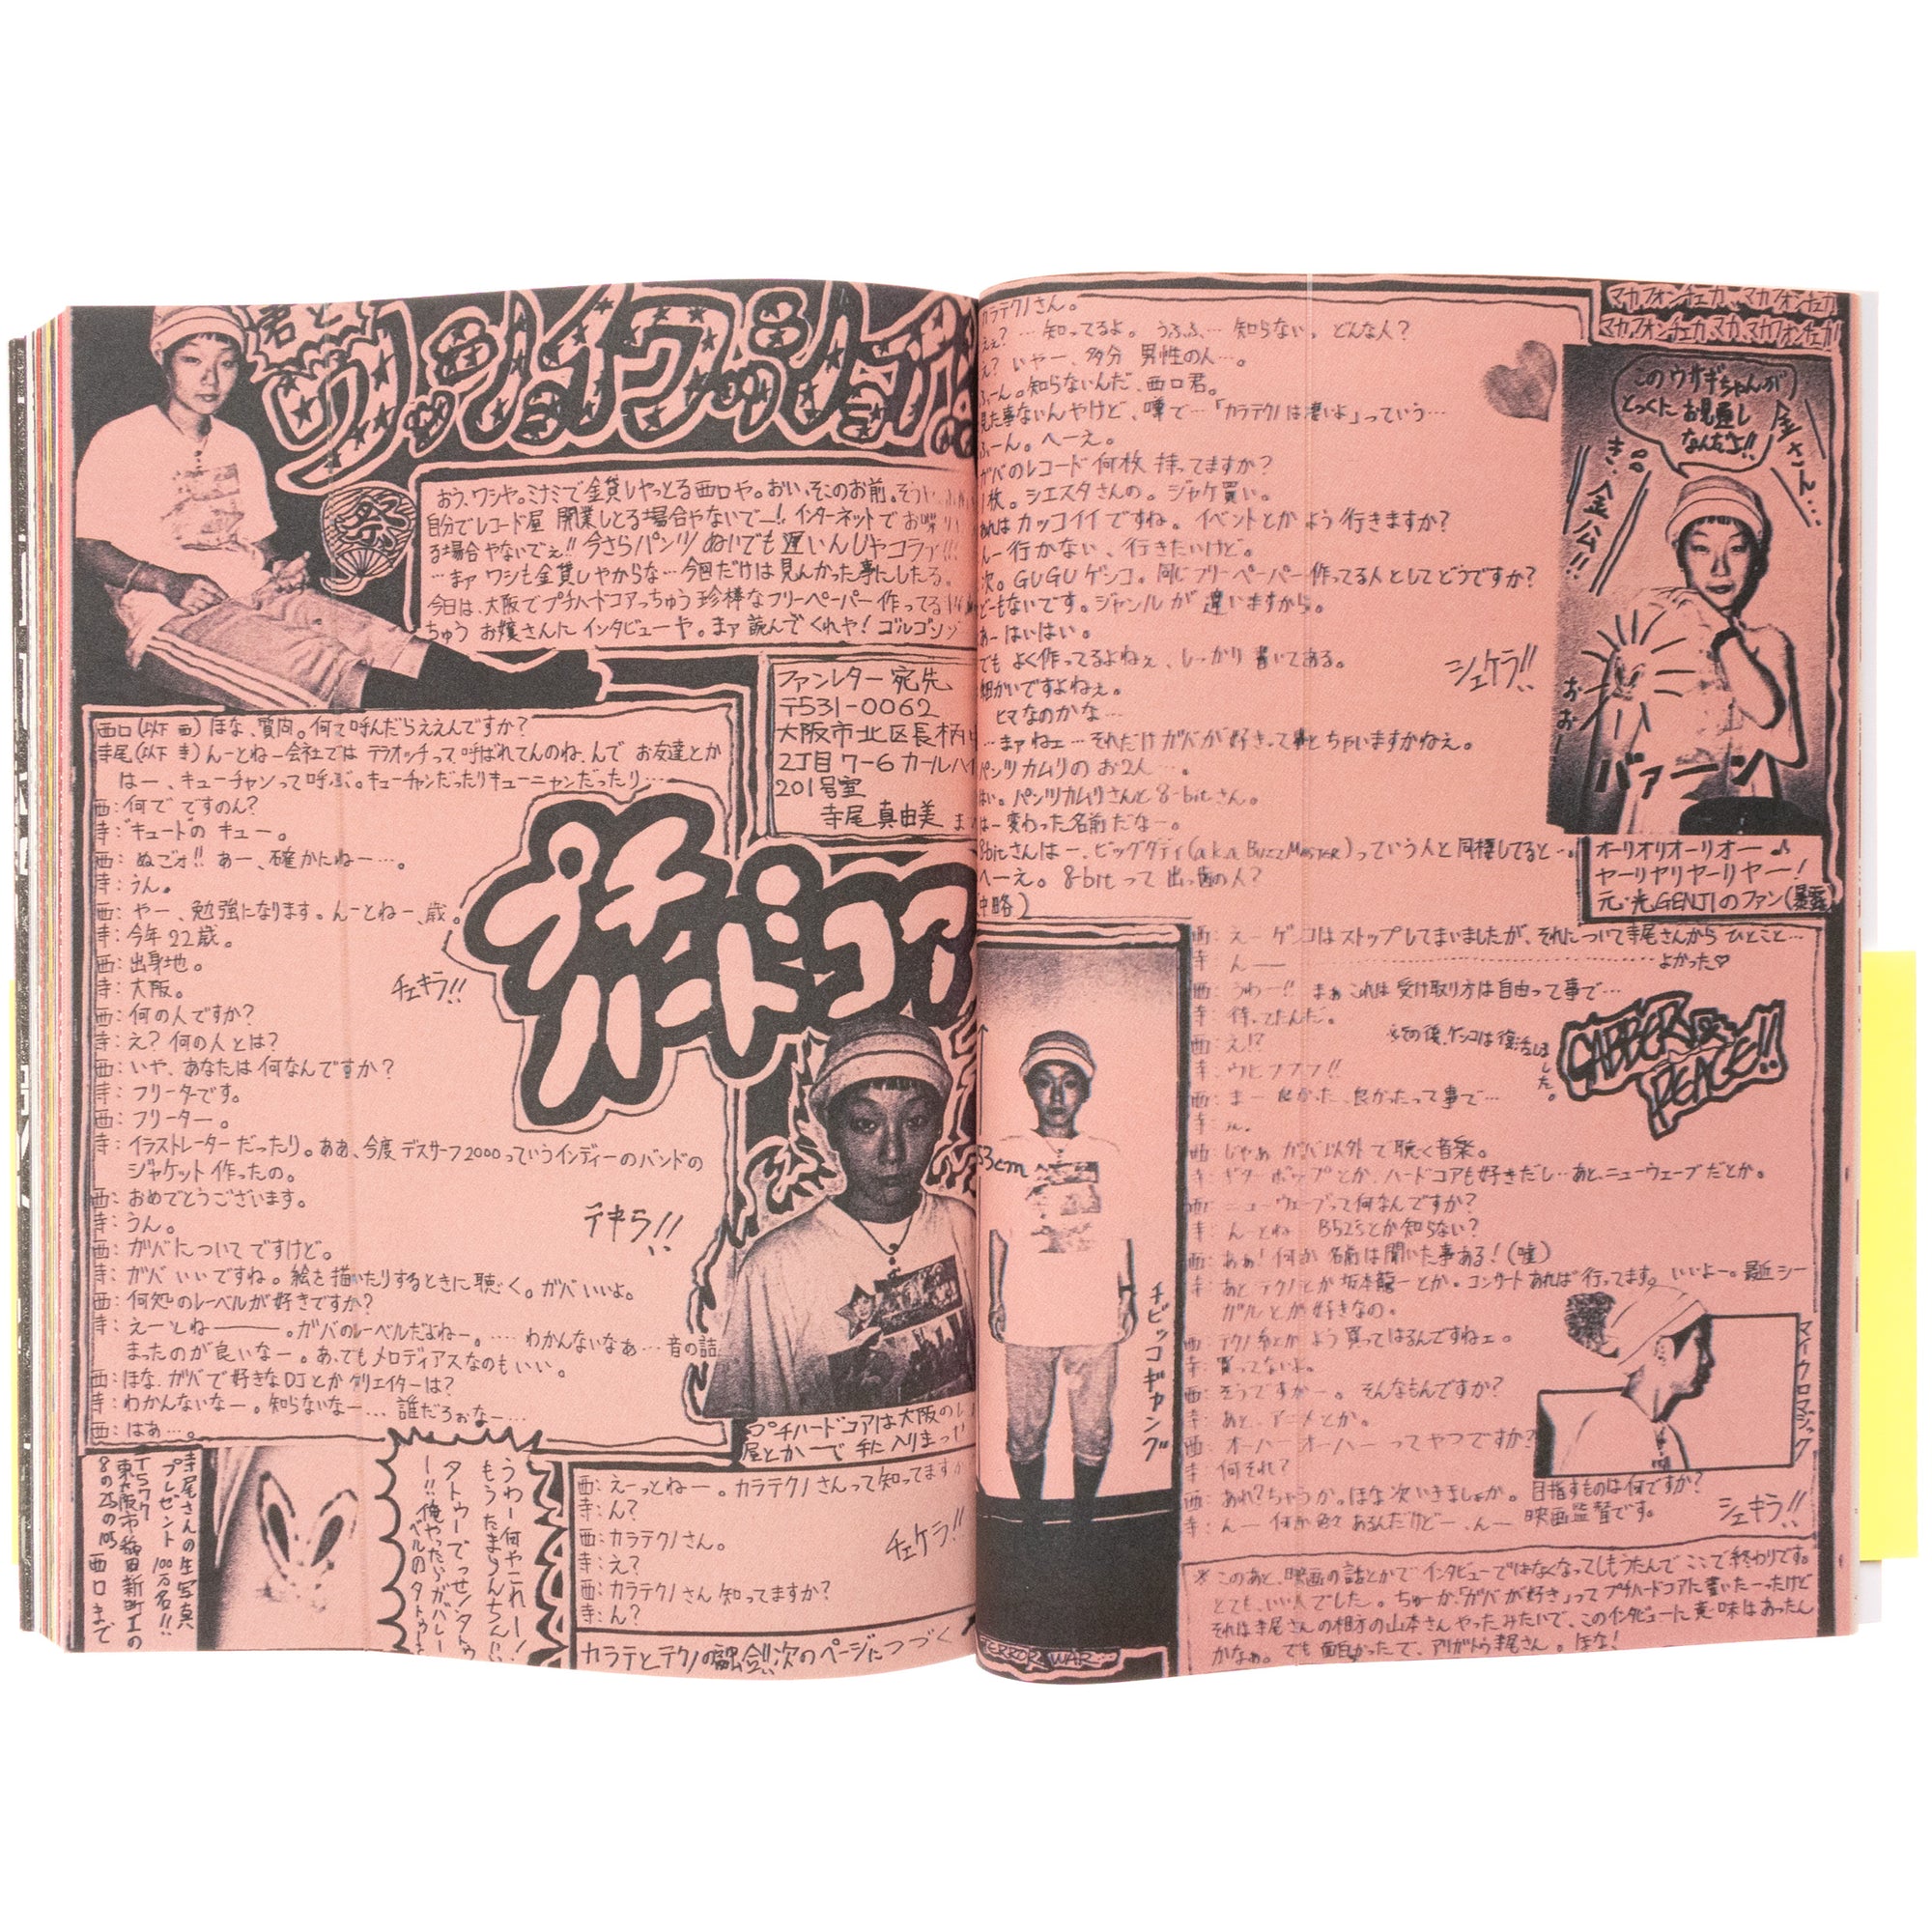 おう、ワシや。ミナミで金貸しやっとる西口や。おい、そこのお前。そう
自分でレコード屋 開業しとる場合やないでー!、インターネットで お喋り
る場合やないでぇ!! 今さらパンツ ぬいでも遅いんじゃコラァ!!!
…まァ ワシも金貸しやからな…今回だけは見んかった事にしたる。
今日は、大阪でプチハードコアっちゅう 珍棒なフリーペーパー 作ってる
ちゅう お嬢さんに インタビューや。まァ 読んで くれや! ゴルゴンゾ
祭
ファンレター 宛先
〒531-0062
大阪市北区長柄
2丁目7-6 カールハイ
201号室
寺尾真由美 ま
西口(以下 西) ほな、質問。何て呼んだらええんですか?
寺尾(以下 寺) んーとねー会社では テラオッチって呼ばれてんのね、んで お友達とか
はー、キューチャンって呼ぶ。キューチャンだったりキューニャンだったり…
西:何で ですのん?
寺:"キュート"の キュー。
西:ぬごォ!! あー、確かにねー…。
寺:うん。
西:やー、勉強になります。んーとねー、歳。
寺:今年22歳。
西:出身地。
寺:大阪。
チェキラ!!
西:何の人ですか?
寺:え? 何の人とは?
西:いや、あなたは 何なんですか?
寺:フリーターです。
西:フリーター。
寺:イラストレーターだったり。ああ、今度 デスサーフ2000っていうインディーのバンドの
ジャケット作ったの。
西:おめでとうございます。
寺:うん。
西:ガバについて ですけど。
寺:ガバ いいですね。絵を描いたりするときに聴く。ガバ いいよ。
西:何処のレーベルが好きですか?
寺:えーとね———。ガバのレーベルだよねー。…. わかんないなぁ… 音の詰
まったのが良いなー。あ、でもメロディアスなのもいい。
西:ほな、ガバで好きなDJとかクリエイターは?
寺:わかんないなー。知らないなー… 誰だろぉなー…
西:はあ…。
プチハードコア
デキラ!!
プチハードコアは大阪のレ
屋とかーで 手に入りまっ
寺尾さんの生写真
プレゼント 100万名!!
〒577
東大阪市稲田新町1の
8の25の105 西口まで
うわー何やこれー!
もうたまらんちんに
タトゥーでっせンタトゥ
ー!! 俺やったらガバレー
ベルのタトゥー
西:えーっとねー。カラテクノさんって知ってますか
寺:ん?
西:カラテクノさん。
寺:え?
西:カラテクノさん 知ってますか?
寺:ん?
チェケラ!!
カラテとテクノの融合!!次のページにつづく
カラテクノさん。
ええ? …知ってるよ。 うふふ… 知らない。どんな人?
え? いやー、多分 男性の人…。
ふーん。知らないんだ、西口君。
見た事ないんやけど、噂で…「カラテクノは凄いよ」っていう…
ふーん。へーえ。
ガバのレコード何枚 持ってますか?
1枚。シエスタさんの。ジャケ買い。
あれは カッコイイですね。 イベントとか よう 行きますか?
んー行かない、行きたいけど。
次。GUGUゲンコ。同じフリーペーパー作ってる人としてどうですか?
どーもないです。ジャンルが 違いますから。
あーはいはい。
でも よく作ってるよねぇ、しっかり 書いてある。
細かいですよねぇ。
ヒマなのかな…
…まァねェ…それだけガバが好きって事とちゃいますかねえ。
パンツカムリの お2人…。
はい。パンツカムリさんと8-bitさん。
はー変わった名前だなー。
8bitさんはー、ビッグダディ(a.k.a BUZZMASTER)っていう人と同棲してると…。
へーえ。8-bitって 出っ歯の人?
(中略)
シェケラ!!
マカフォンチェカ、マカフォンチェカ
マカフォンチェカ、マカ、マカフォンチェカ
このウサギちゃんが
とっくに お見通し
なんだよ!!
金さん…
き、金公!!
おおー
バァーン
オーリオリオーリオー♪
ヤーリヤリヤーリヤー!
元・光GENJIのファン(暴露)
西:えー ゲンコは ストップしてまいましたが、それについて寺尾さんから ひとこと…
寺:んー…よかった♡
西:うわー!! まぁ これは 受け取り方は自由って事で…
寺:待ってたんだ。
西:え!?
寺:ウヒフフフ!!
※その後、ゲンコは復活しました。
西:まー 良かった、良かったって事で…
寺:ん。
GABBER is PEACE!!
西:じゃぁ ガバ以外で聴く音楽。
寺:ギターポップとか、ハードコアも好きだし…あと、ニューウェーブだとか。
西:ニューウェーブって何なんですか?
寺:んーとね B52'sとか知らない?
西:あぁ! 何か 名前は聞いた事ある!(嘘)
寺:あと テクノとか坂本龍一とか。コンサートあれば行ってます。いいよー。最近 シー
ガルとか好きなの。
西:テクノ系とか よう買ってはるんですねェ。
寺:買ってないよ。
西:そうですかー。そんなもんですか?
寺:あと、アニメとか。
西:オーハーオーハー ってやつですか?
寺:何それ?
西:あれ?ちゃうか。ほな次いきましょか。目指すものは何ですか?
寺:んー 何か色々 あるんだけどー、んー 映画監督です。
シェキラ!!
53cm
チビッコギャング
マイクロマジック
TERROR WAR…
※ このあと、映画の話とかで インタビューではなくなってしもうたんで ここで終わりです。
とても、いい人でした。ちゅーか「ガバが好き」って プチハードコアに書いたーったけど
それは寺尾さんの相方の山本さんやったみたいで、このインタビューに意味はあったん
かなぁ。でも 面白かったで、アリガトウ寺尾さん。ほな!